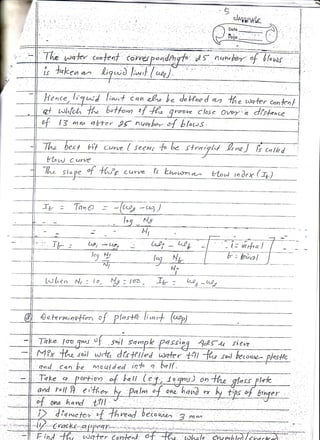 5
classmate
Date
Page
- The water content corresponding to 25 number of blows
is taken as liquid limit (wL).
- Hence, liquid limit can also be defined as the water content
at which the bottom of the groove close over a distance
of 13 mm after 25 number of blows.
- The best fit curve (seems to be straight line) is called
flow curve
- The slope of this curve is known as flow index (If)
If = Tanθ = -(w2 - w1)
log N2
N1
If = w1 - w2 = wi - wf
log N2 log Nf
N1 Ni
i = initial
f = final
When N1 = 10, N2 = 100, If = w1 - w2
Determination of plastic limit (wp)
- Take 100 gms of soil sample passing 425 μ sieve
- Mix the soil with distilled water till the soil become plastic
and can be moulded into a ball.
- Take a portion of ball (eg, 10gms) on the glass plate
and roll it either by palm of one hand or by tips of finger
of one hand till
i) diameter of thread becomes 3 mm
ii) cracks appear
- Find the water content of the whole crumbled/cracked